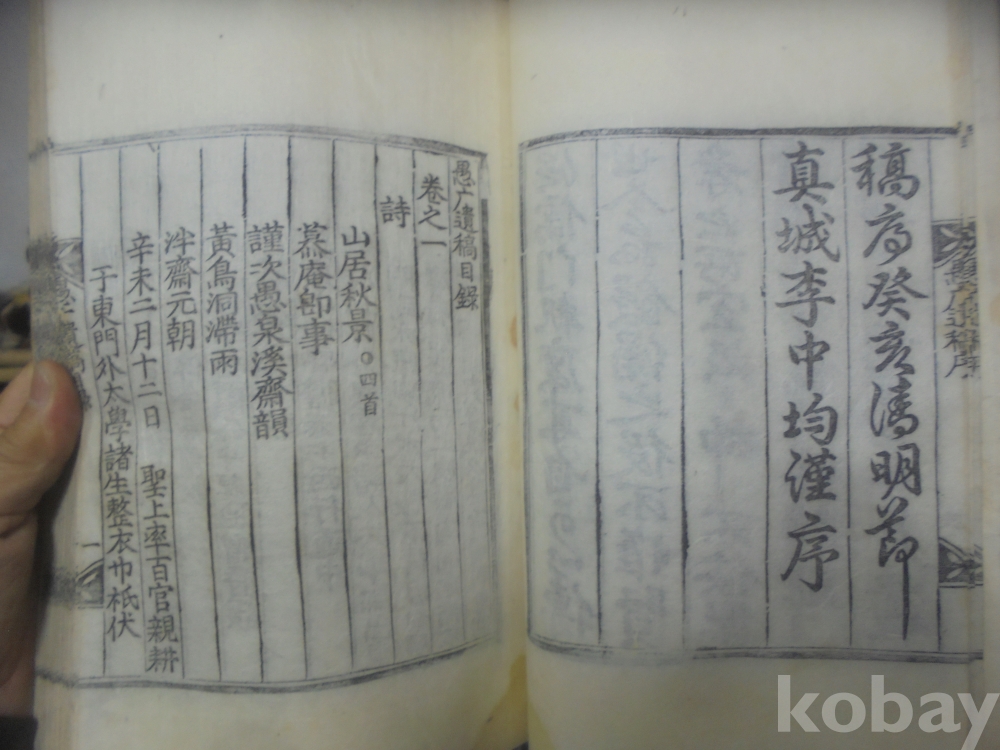 稿序癸亥淸明節
真城李中均謹序
愚广遺稿目錄
卷之一
詩
山居秋景○四首
慕庵卽事
謹次愚泉溪齋韻
黃鳥洞滯雨
泮齋元朝
辛未二月十二日 聖上率百官親耕
于東門外太學諸生整衣巾祗伏
一
kobay